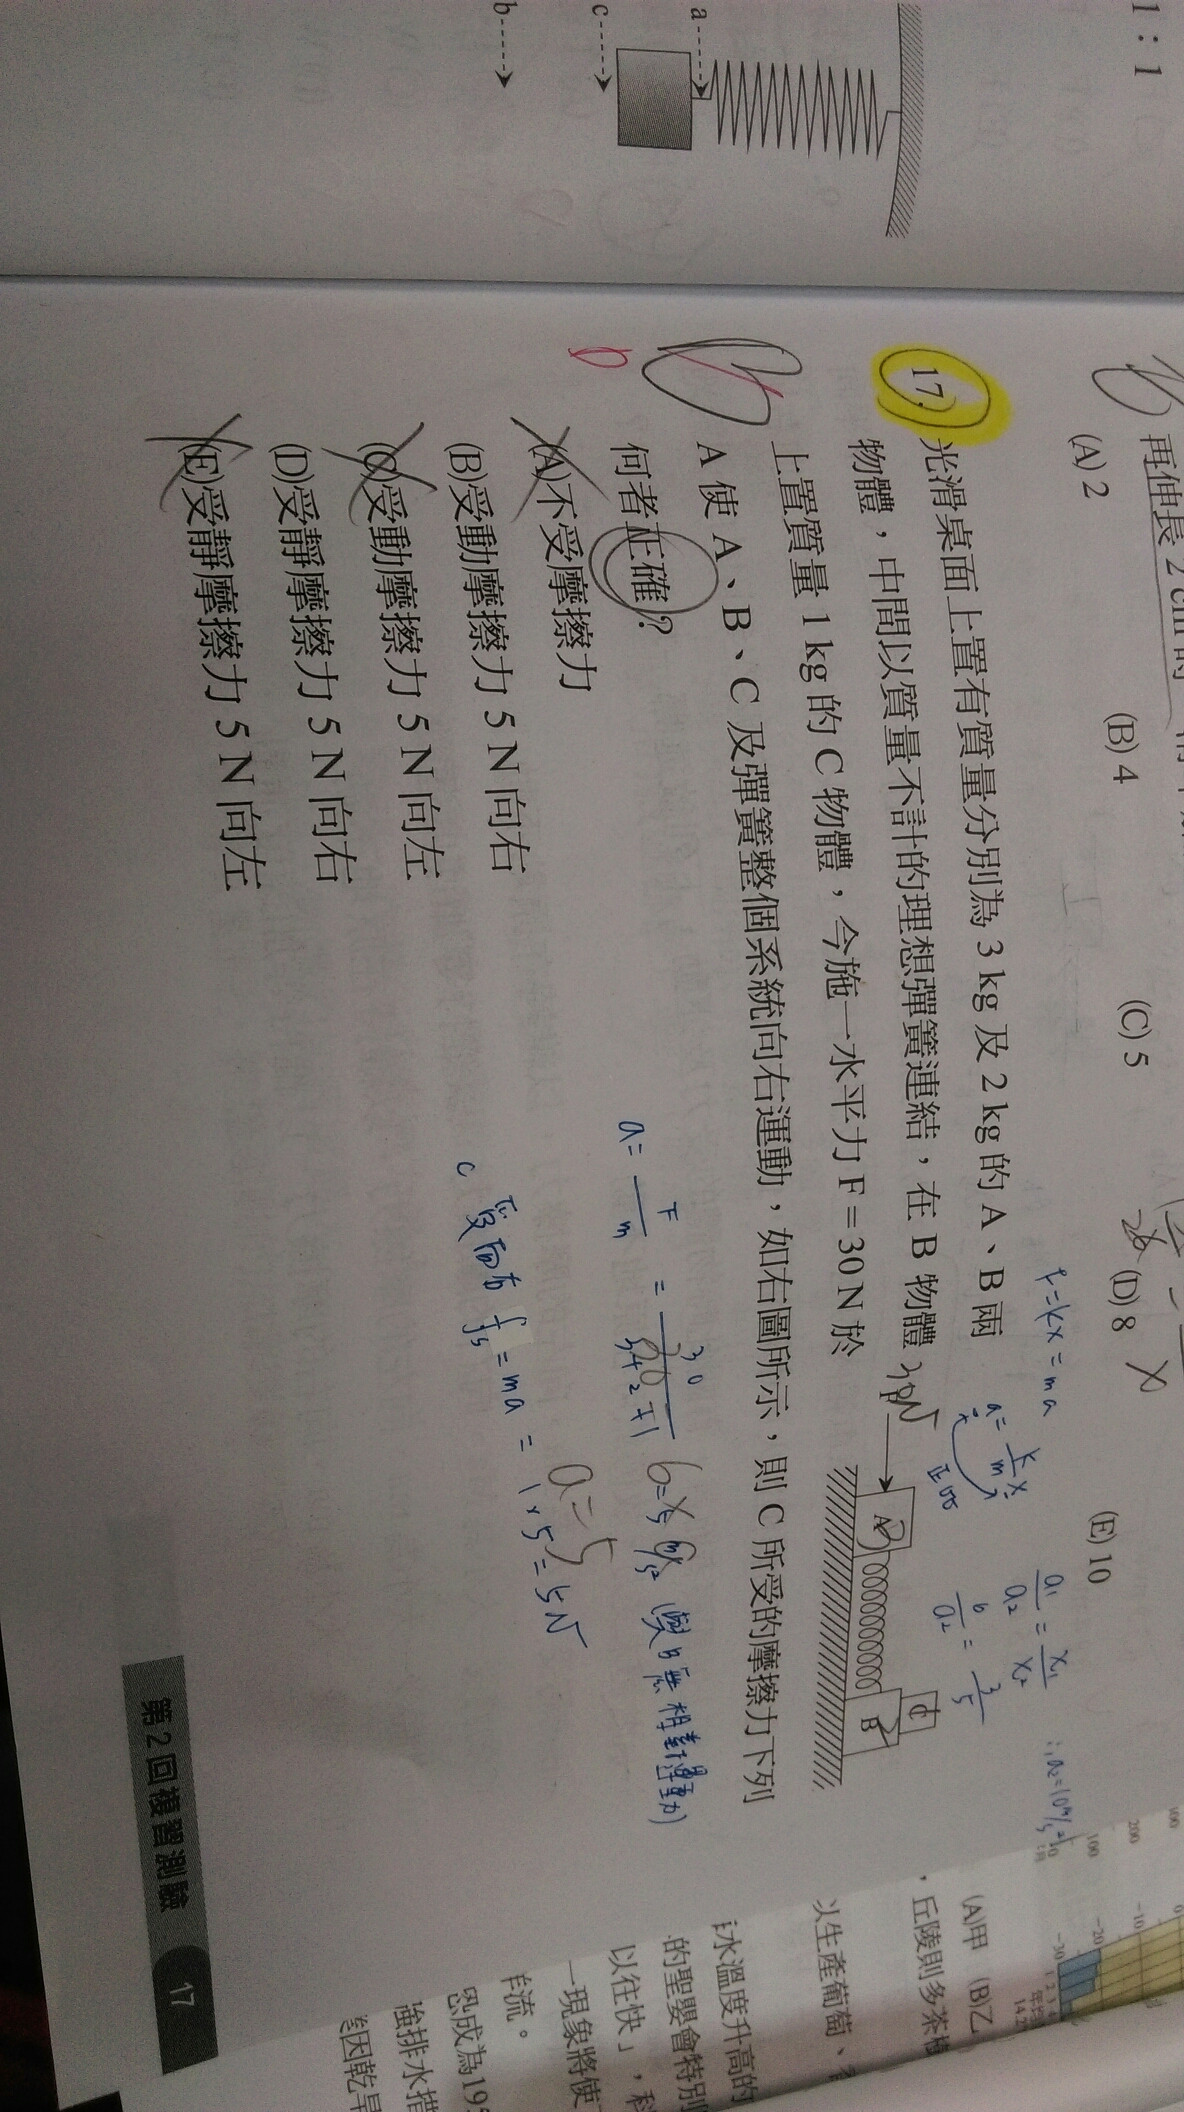 1:1
a
c
b
再伸長 2 cm 的
(A) 2
(B) 4
(C) 5
(D) 8
(E) 10
F=kx=ma
正比
∴a₂=10m/s²
17.
光滑桌面上置有質量分別為 3 kg 及 2 kg 的 A、B 兩
物體，中間以質量不計的理想彈簧連結，在 B 物體
上置質量 1 kg 的 C 物體，今施一水平力 F = 30 N 於
A 使 A、B、C 及彈簧整個系統向右運動，如右圖所示，則 C 所受的摩擦力下列
何者正確？
(A)不受摩擦力
(B)受動摩擦力 5 N 向右
(C)受動摩擦力 5 N 向左
(D)受靜摩擦力 5 N 向右
(E)受靜摩擦力 5 N 向左
30N
A
B
C
(與B無相對運動)
a=5
C 受向右 fs = ma = 1×5=5N
第 2 回複習測驗 17
(A)甲 (B)乙
，丘陵則多茶樹
以生產葡萄、
水溫度升高的
的聖嬰會特別
以往快」，科
一現象將使
洋流。
恐成為19
強排水措
因乾旱